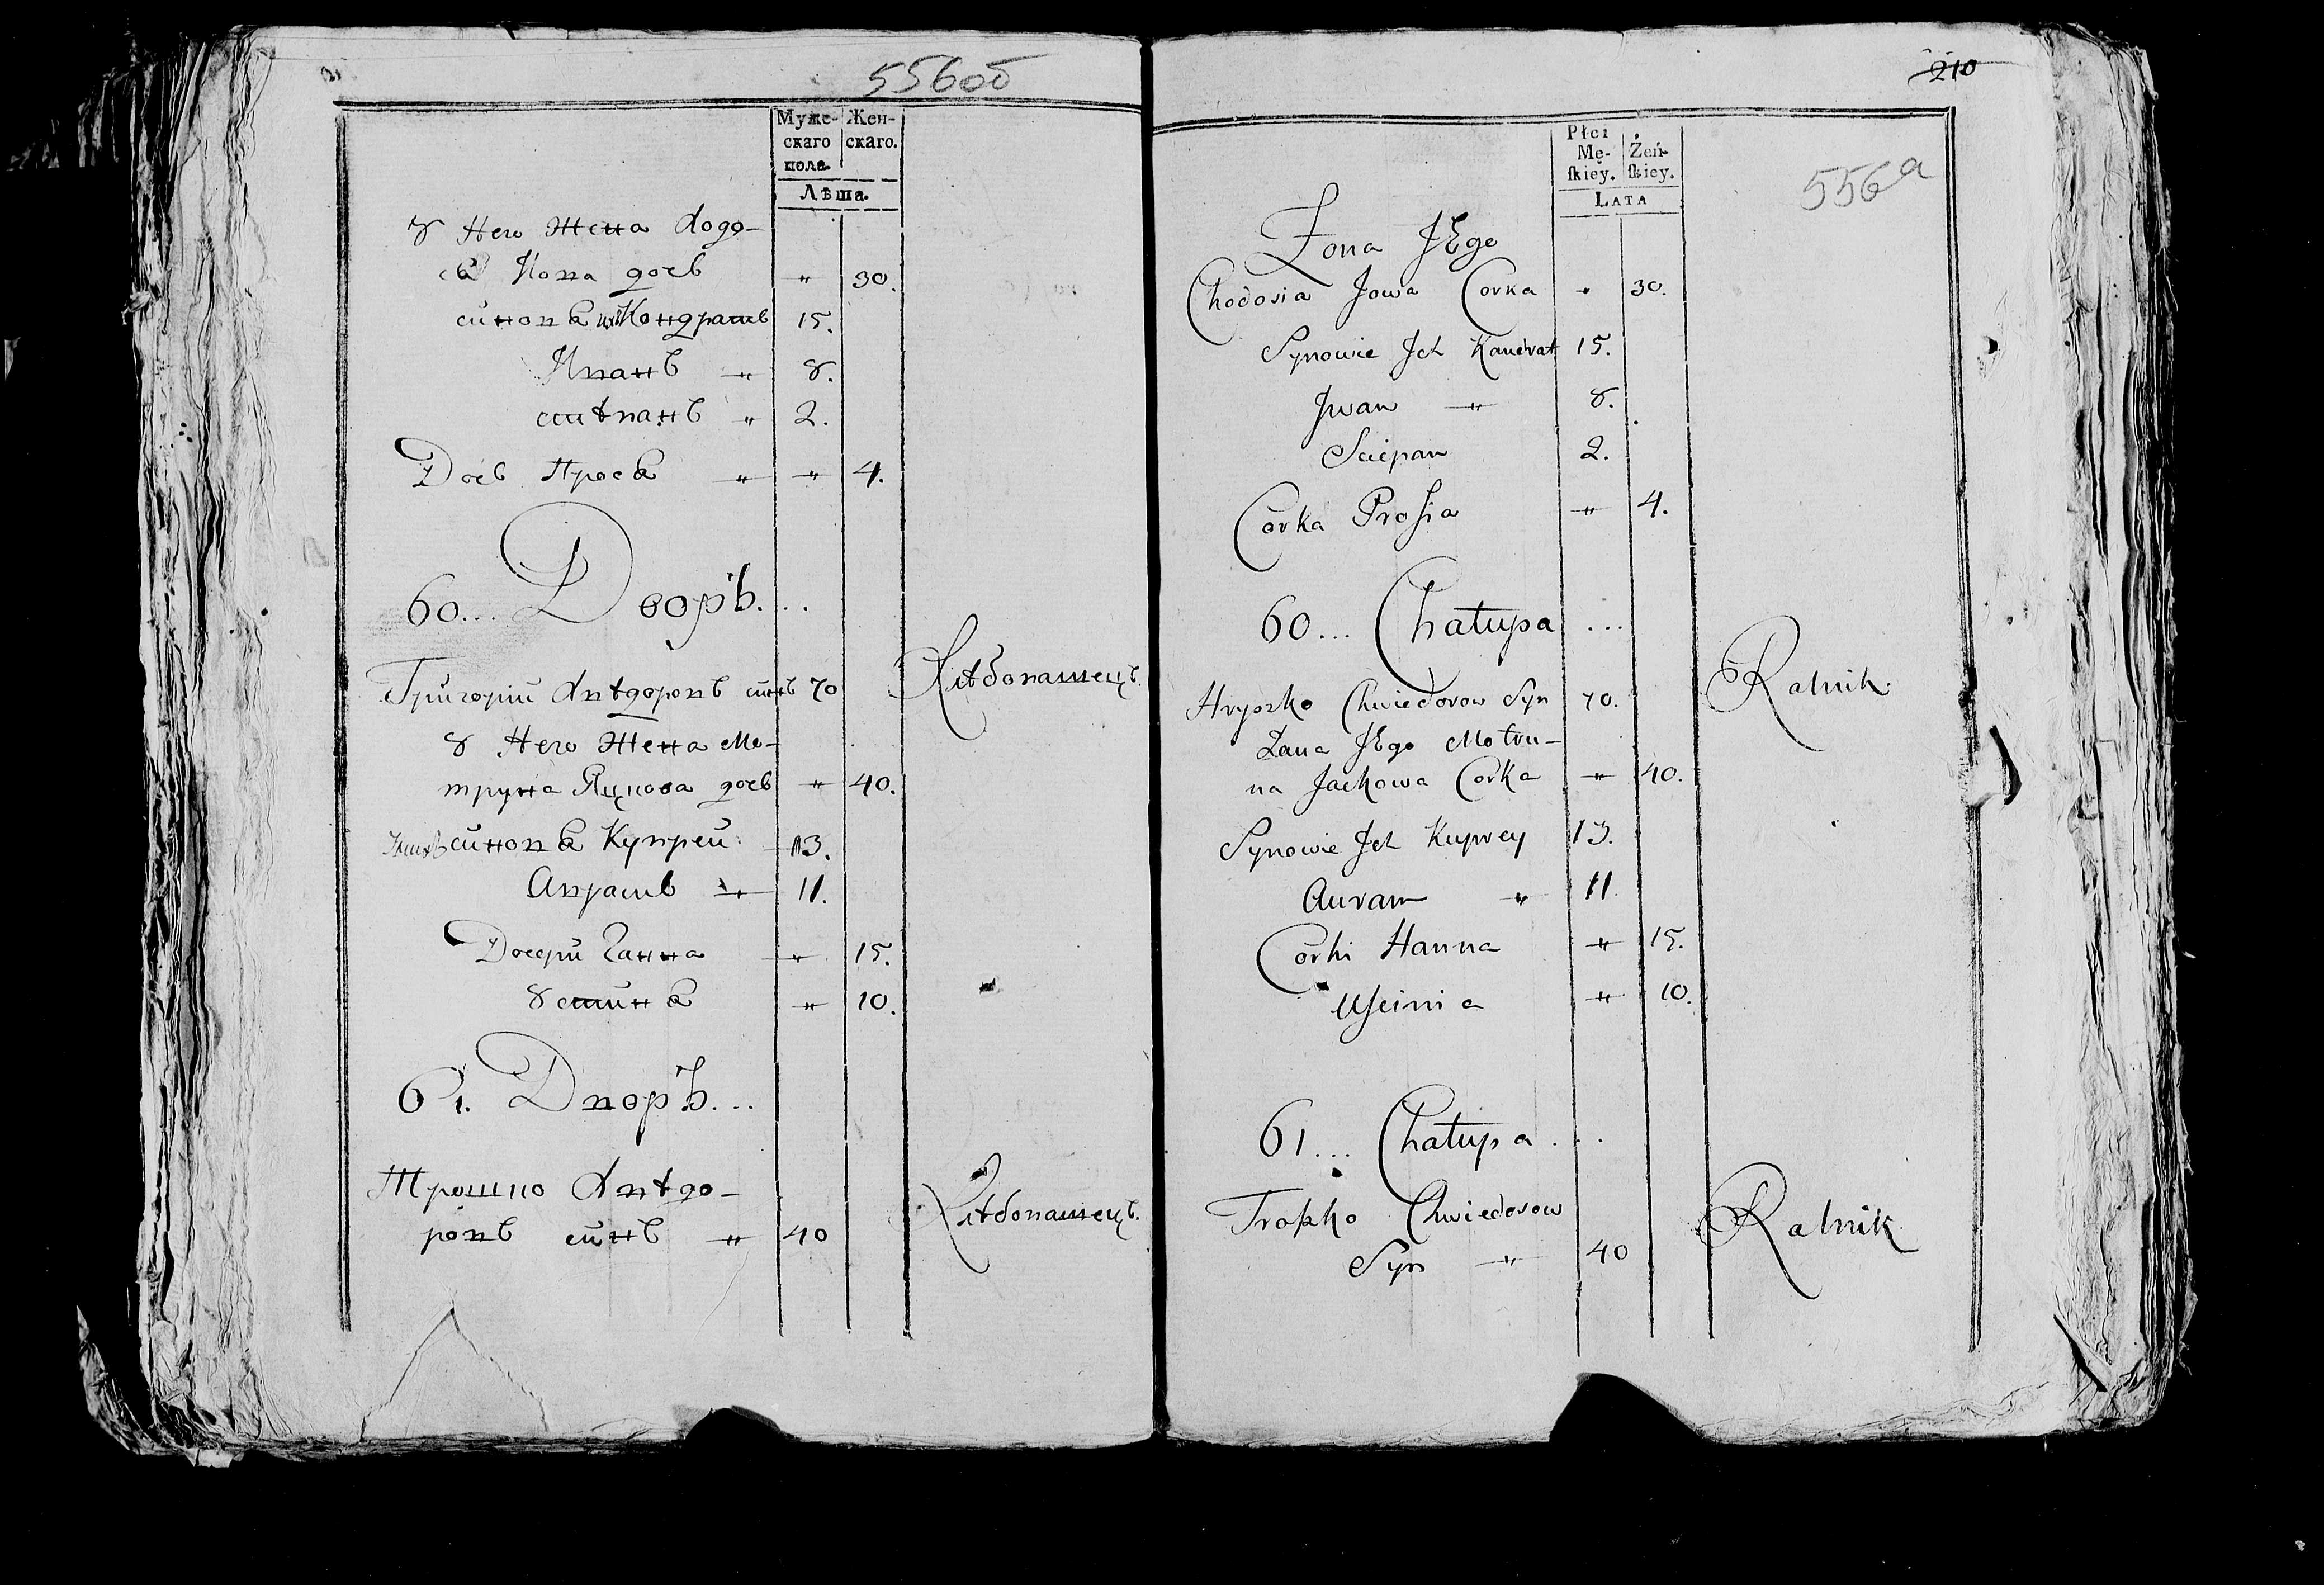 556об
Муже- Жен-
скаго скаго.
пола
Лѣта
У Него Жена Ходо-
ся Иова дочь " 30.
синовя их Кондратъ 15.
Иванъ " 8.
стѣпанъ " 2.
Дочь Прося " " 4.
60... Дворъ...
Григорій Хвѣдоровъ синъ 70 Хлѣбопашецъ.
У Него Жена Мо-
труна Яцкова дочь " 40.
синовя Купрей 13.
Аврамъ " 11.
Дочери Ганна " 15.
Устиня " 10.
61. Дворъ...
Трошко Хвѣдо-
ровъ синъ " 40 Хлѣбопашецъ.
210
556а
Płci
Mę- Żeń-
ſkiey. ſkiey.
LATA
Żona JEgo
Chodosia Jowa Corka " 30.
Synowie Jch Kandrat 15.
Jwan " 8.
Sciepan 2.
Corka Proſia " 4.
60... Chałupa...
Hryszko Chwiedorow Syn 70. Rolnik
Żona JEgo Motru-
na Jackowa Corka " 40.
Synowie Jch Kuprey 13.
Auram " 11.
Corki Hanna " 15.
Uſcinia " 10.
61... Chałupa...
Troſzko Chwiedorow
Syn " 40 Rolnik